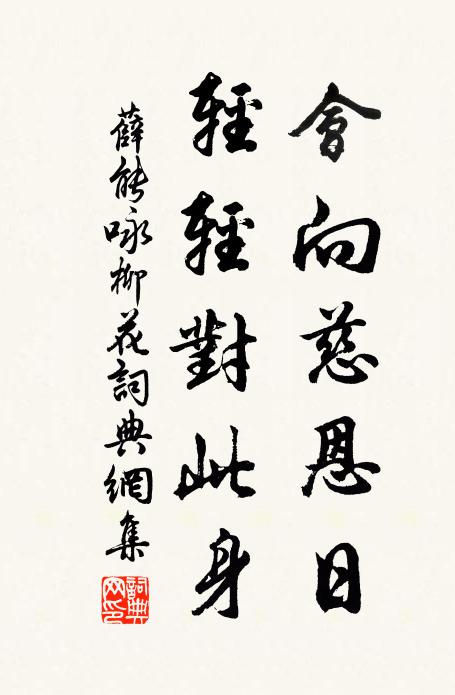 會向慈恩日
輕輕對此身
薛能咏柳花詞典網集
詞典網印